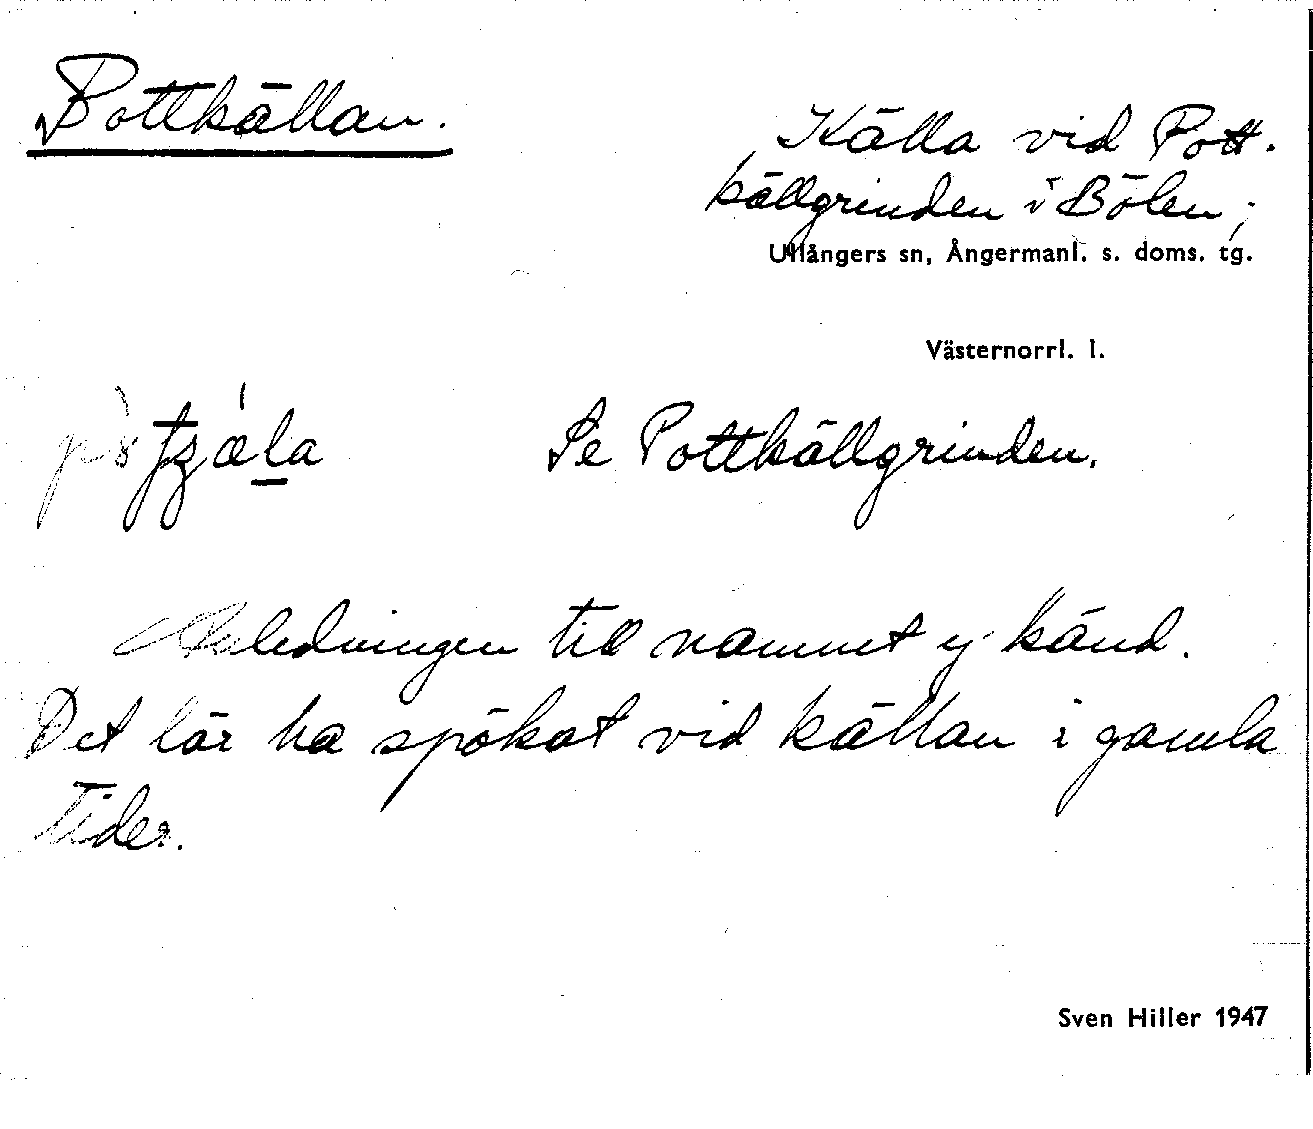 Pottkällan.
Källa vid Pott-
källgrinden i Bölen,
Ullångers sn, Ångermanl. s. doms. tg.
Västernorrl. l.
Se Pottkällgrinden.
Anledningen till namnet ej känd.
Det lär ha spökat vid källan i gamla
tider.
Sven Hiller 1947